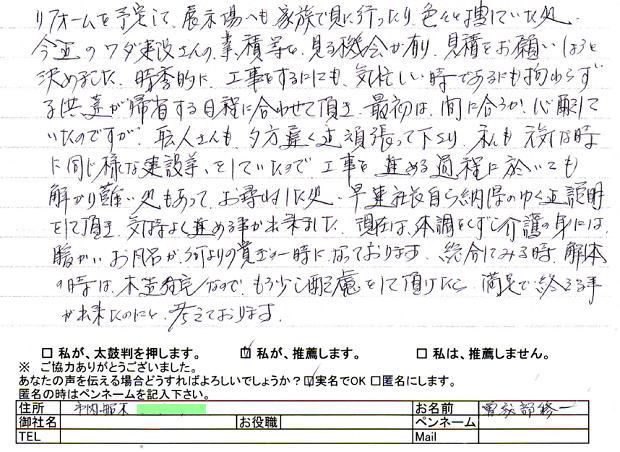 リフォームを予定して、展示場へも家族で見に行ったり、色々と ていた処、
今迄のワダ建設さんの、業積等を、見る機会が有り、見積をお願いしようと
決めました。時季的に、工事をするにも、気忙しい時であるにも拘わらず
子供達が帰省する日程に合わせて頂き、最初は、間に合うか心配して
いたのですが、職人さんも、夕方遅く迄頑張って下さり、私も 元気な時
に同じ様な建設業、をしていたので工事を進める過程に於いても
解かり難い処もあって、お尋ねした処、早速社長自ら納得のゆく迄説明
をして頂き、気持よく進める事が出来ました。現在は、体調をくずし介護の身には、
暖かいお風呂が、何よりの 一時になっております。総合してみる時、解体
の時は、木造住宅なので、もう少し配慮をして頂けたら、満足で終える事
が出来たのにと、考えております。
□ 私が、太鼓判を押します。 ☑ 私が、推薦します。 □ 私は、推薦しません。
※ ご協力ありがとうございました。
あなたの声を伝える場合どうすればよろしいでしょうか？☑実名でOK □匿名にします。
匿名の時はペンネームを記入下さい。
住所 市内 お名前 曽我部修一
御社名 お役職 ペンネーム
TEL Mail